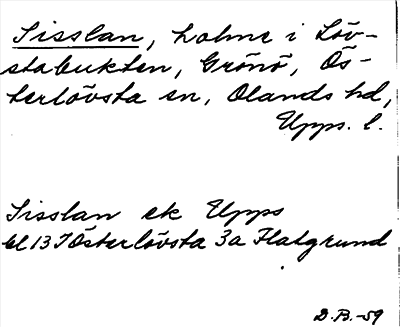 Sisslan, holme i Löv-
stabukten, Grönö, Ös-
terlövsta sn, Olands hd,
Upps. l.
Sisslan ek Upps
bl 13 I Österlövsta 3a Flatgrund
D.B.-59